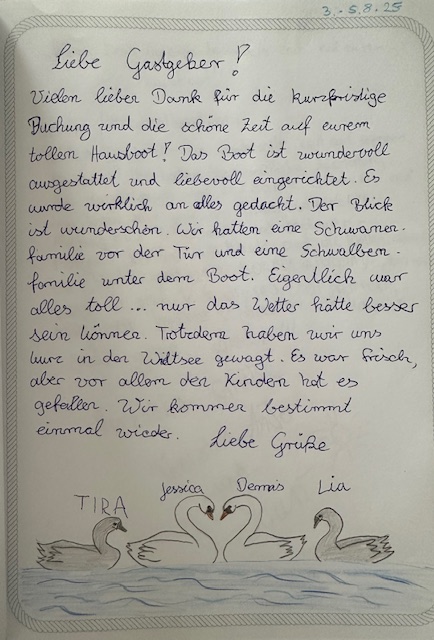 3. - 5.8.25
Liebe Gastgeber!
Vielen lieben Dank für die kurzfristige
Buchung und die schöne Zeit auf eurem
tollen Hausboot! Das Boot ist wundervoll
ausgestattet und liebevoll eingerichtet. Es
wurde wirklich an alles gedacht. Der Blick
ist wunderschön. Wir hatten eine Schwanen-
familie vor der Tür und eine Schwalben-
familie unter dem Boot. Eigentlich war
alles toll ... nur das Wetter hätte besser
sein können. Trotzdem haben wir uns
kurz in den Wildtsee gewagt. Es war frisch,
aber vor allem den Kindern hat es
gefallen. Wir kommen bestimmt
einmal wieder. Liebe Grüße
TIRA Jessica Dennis Lia